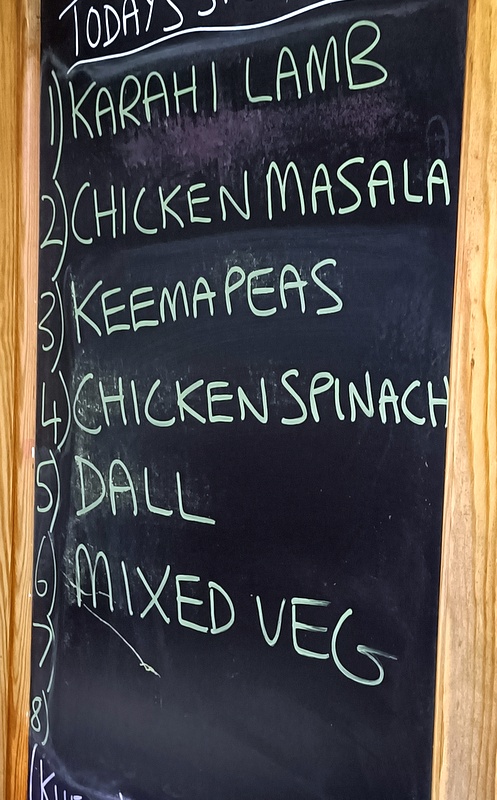 TODAYS
1) KARAHI LAMB
2) CHICKEN MASALA
3) KEEMA PEAS
4) CHICKEN SPINACH
5) DALL
6) MIXED VEG
7
8